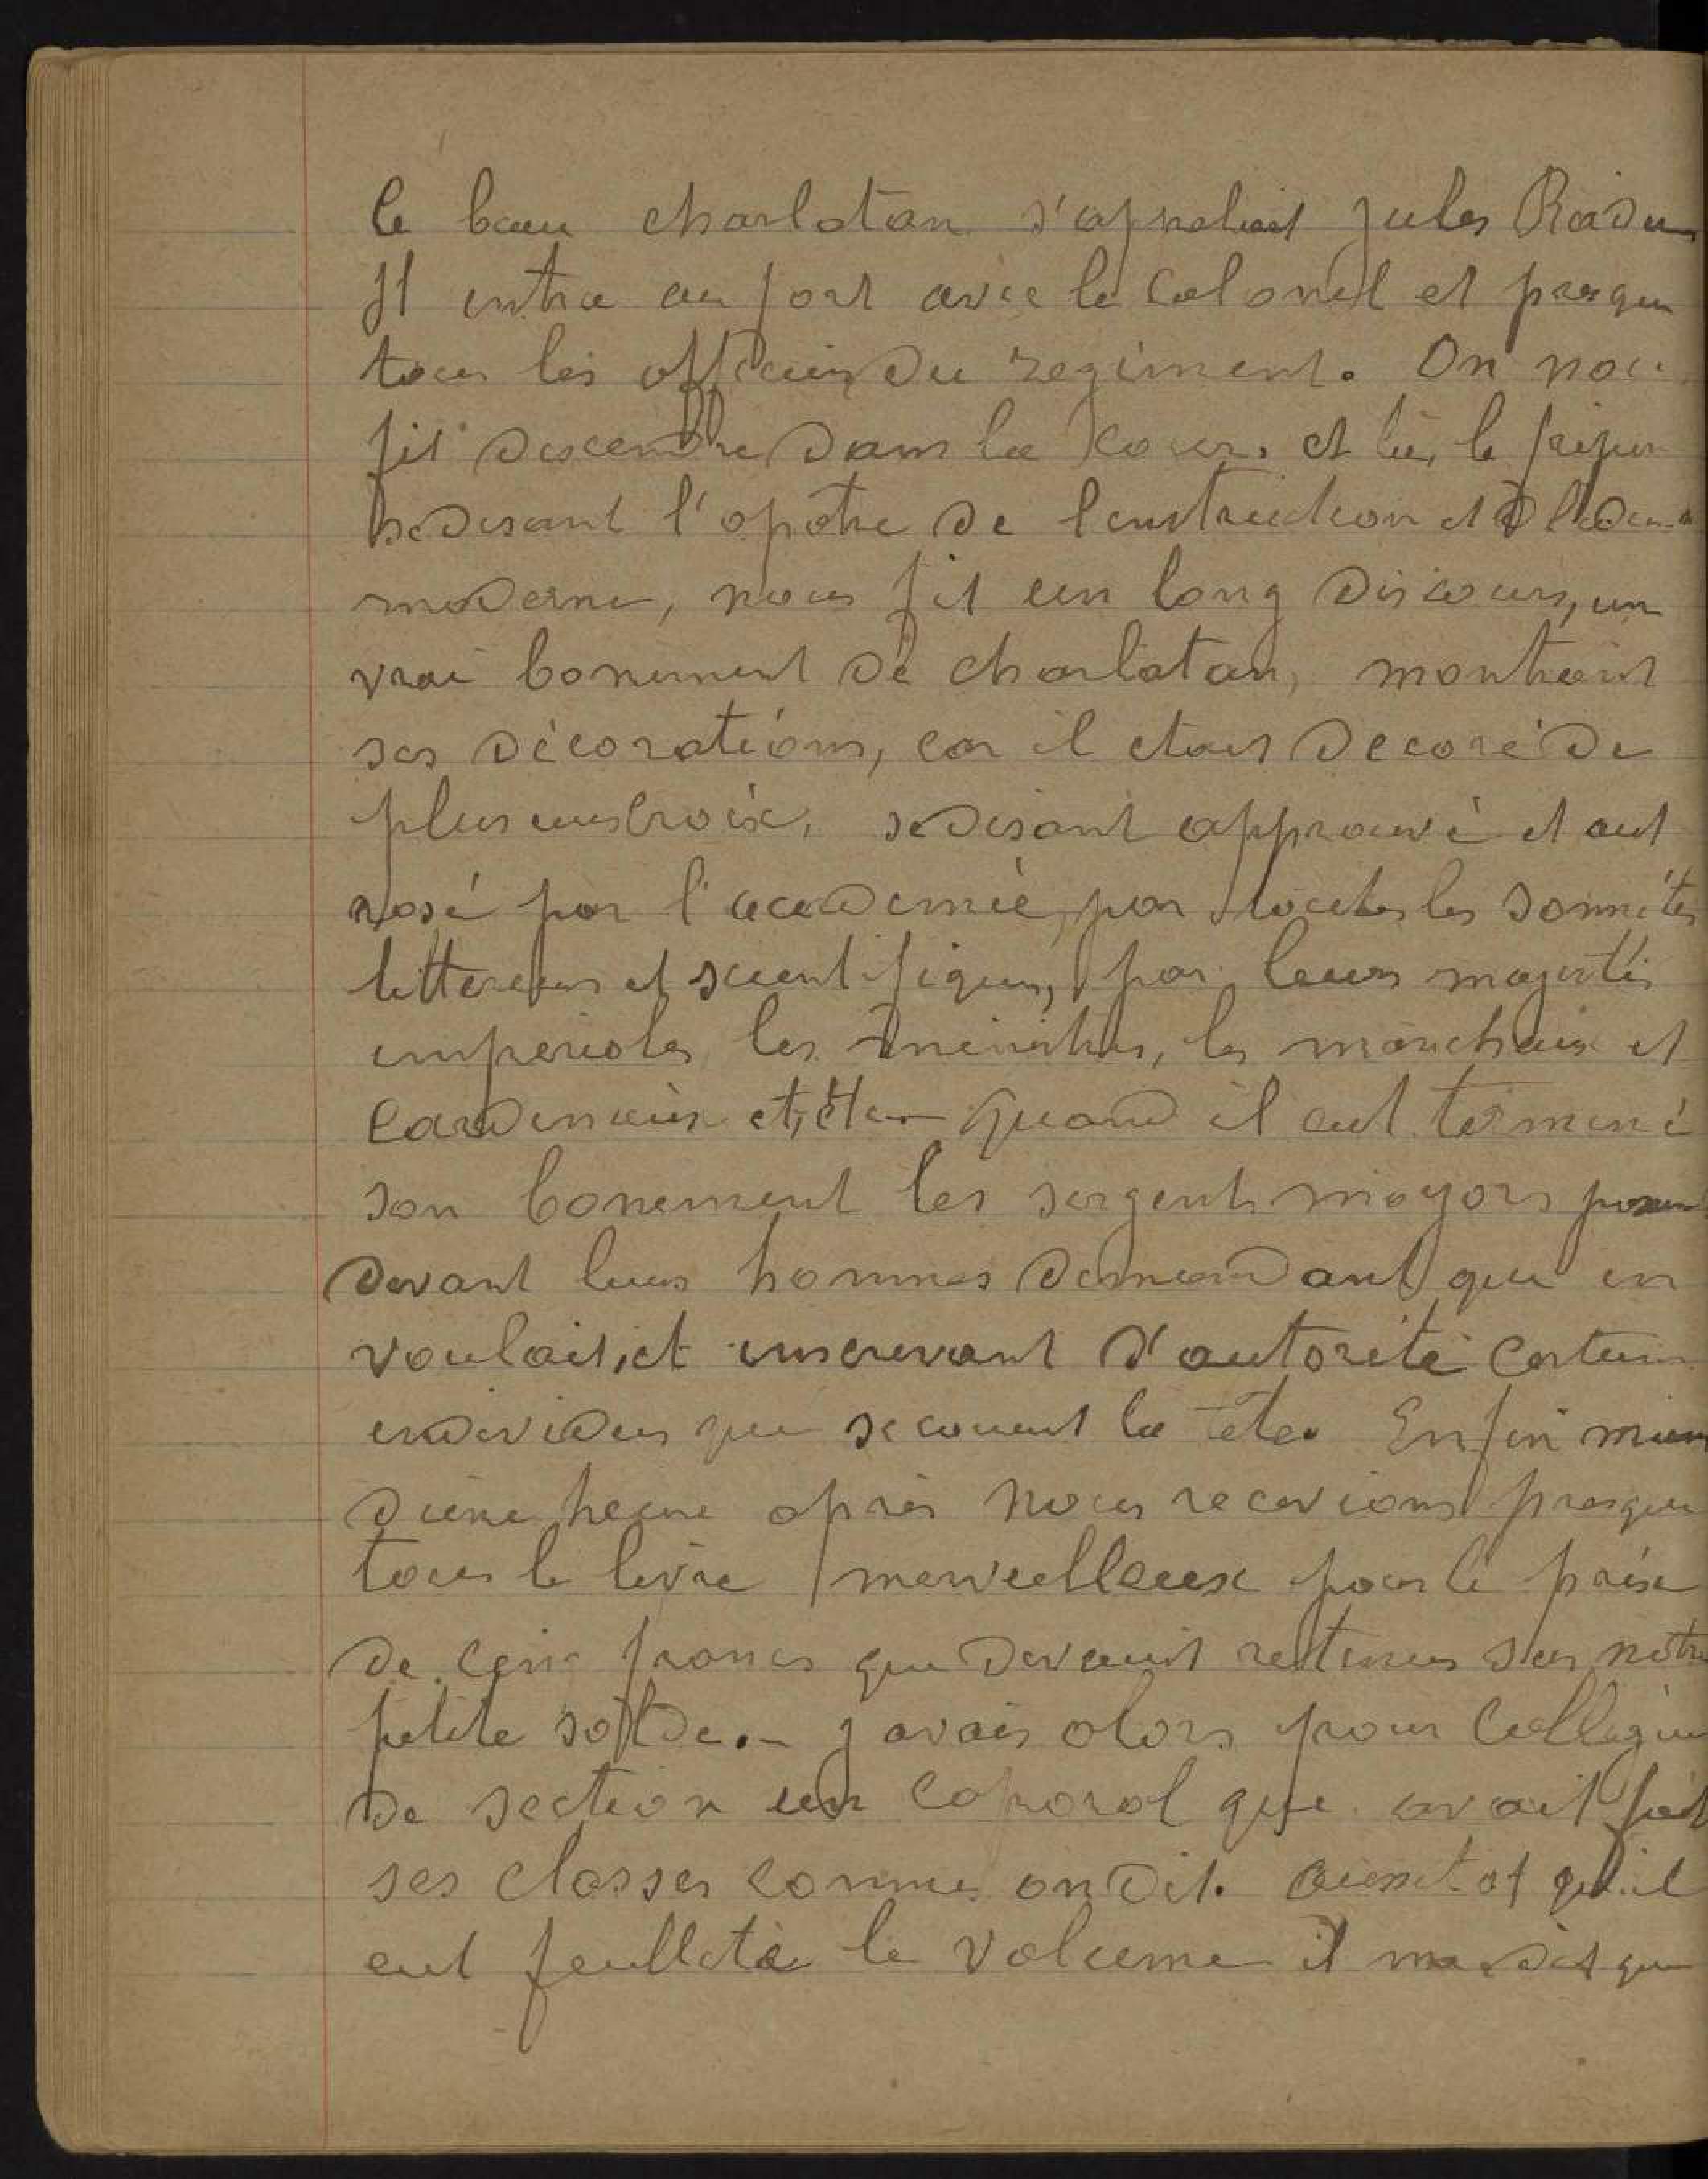 le beau charlatan s'appelait Jules Radu
Il entra au fort avec le colonel et presque
tous les officiers du regiment. On nous
fit descendre dans la cour. et là, le fripon
se disant l'apotre de l'instruction et de
moderne, nous fit un long discours, un
vrai boniment de charlatan, montrant
ses décorations, car il etait decoré de
plusieurs croix, se disant approuvé et auto
risé par l'academie, par toutes les sommités
litteraires et scientifiques, par leurs majestés
imperiales, les ministres, les marechaux et
cardinaux et, et. – Quand il eut terminé
son boniment les sergents majors
devant leurs hommes demandant qui en
voulait, et inscrivant d'autorité certains
individus qui secouent la tête. Enfin moins
d'une heure après nous recevions presque
tous le livre merveilleux pour le prix
de cinq francs que devaient retenus sur notre
petite solde. – j'avais alors pour collègue
de section un caporal qui avait fait
ses classes comme on dit. aussitot qu'il
eut feulleté le volume il me dit que